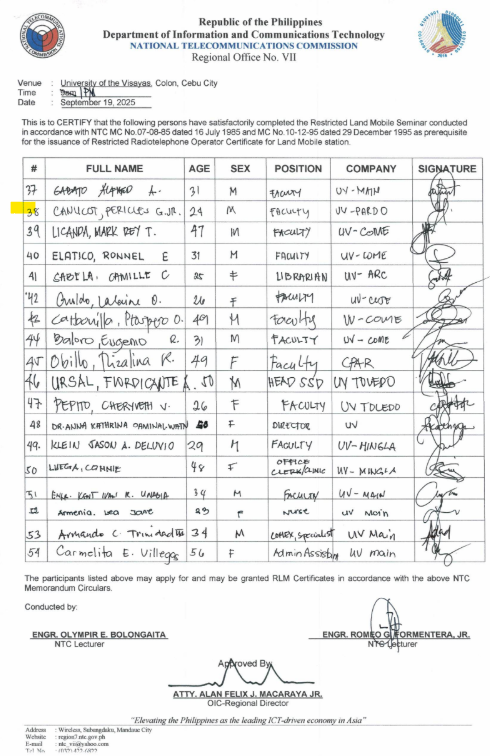 Republic of the Philippines
Department of Information and Communications Technology
NATIONAL TELECOMMUNICATIONS COMMISSION
Regional Office No. VII
Venue : University of the Visayas, Colon, Cebu City
Time : 1PM
Date : September 19, 2025
This is to CERTIFY that the following persons have satisfactorily completed the Restricted Land Mobile Seminar conducted
in accordance with NTC MC No.07-08-85 dated 16 July 1985 and MC No.10-12-95 dated 29 December 1995 as prerequisite
for the issuance of Restricted Radiotelephone Operator Certificate for Land Mobile station.
# FULL NAME AGE SEX POSITION COMPANY SIGNATURE
37 GABATO ALFREDO A. 31 M FACULTY UV-MAIN
38 CANUCOT, PERICLES G. JR. 24 M FACULTY UV-PARDO
39 LICANDA, MARK REY T. 47 M FACULTY UV-COME
40 ELATICO, RONNEL E 31 M FACULTY UV-COME
41 CAMILLE C F LIBRARIAN UV-ARC
42 O. 26 F FACULTY
Carbonilla, Prospero O. 49 M Faculty UV-COME
44 Baloro, Eugenio R. 31 M FACULTY UV-COME
45 Obillo, Rizalina R. 49 F Faculty CPAR
46 URSAL, FIORDICANTE A. 50 M HEAD SSD UV TOLEDO
47 PEPITO, V. 26 F FACULTY UV TOLEDO
48 DR. ANNA KATHRINA F DIRECTOR UV
49. KLEIN JASON A. DELUVIO 29 M FACULTY UV-MINGLA
50 48 F OFFICE CLERK/CLINIC UV-MINGLA
51 ENGR. KENT IVAN R. UNABIA 34 M FACULTY UV-MAIN
Armenia, Lea Jane F Nurse UV Main
53 Armando C. Trinidad 34 M COMEX, Specialist UV Main
54 Carmelita E. Villegas 56 F Admin Assistant UV main
The participants listed above may apply for and may be granted RLM Certificates in accordance with the above NTC
Memorandum Circulars.
Conducted by:
ENGR. OLYMPIR E. BOLONGAITA
NTC Lecturer
ENGR. ROMEO G. FORMENTERA, JR.
NTC Lecturer
Approved By:
ATTY. ALAN FELIX J. MACARAYA JR.
OIC-Regional Director
"Elevating the Philippines as the leading ICT-driven economy in Asia"
Address : Wireless, Subangdaku, Mandaue City
Website : region7.ntc.gov.ph
E-mail : ntc_vii@yahoo.com